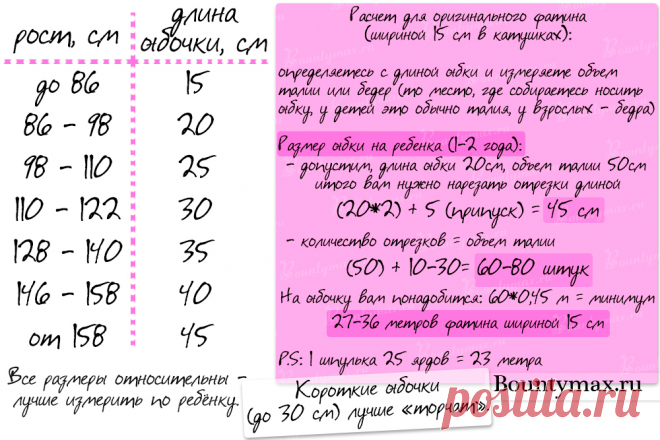 рост, см
длина
юбочки, см
до 86 15
86 - 98 20
98 - 110 25
110 - 122 30
128 - 140 35
146 - 158 40
от 158 45
Все размеры относительны -
лучше измерить по ребенку.
Расчет для оригинального фатина
(шириной 15 см в катушках):
определяетесь с длиной юбки и измеряете объем
талии или бедер (то место, где собираетесь носить
юбку, у детей это обычно талия, у взрослых - бедра)
Размер юбки на ребенка (1-2 года):
- допустим, длина юбки 20см, объем талии 50см
итого вам нужно нарезать отрезки длиной
(20*2) + 5 (припуск) = 45 см
- количество отрезков = объем талии
(50) + 10-30= 60-80 штук
На юбочку вам понадобится: 60*0,45 м = минимум
27-36 метров фатина шириной 15 см
P.S: 1 шпулька 25 ярдов = 23 метра
Bountymax.ru
Короткие юбочки
(до 30 см) лучше «торчат».
postila.ru